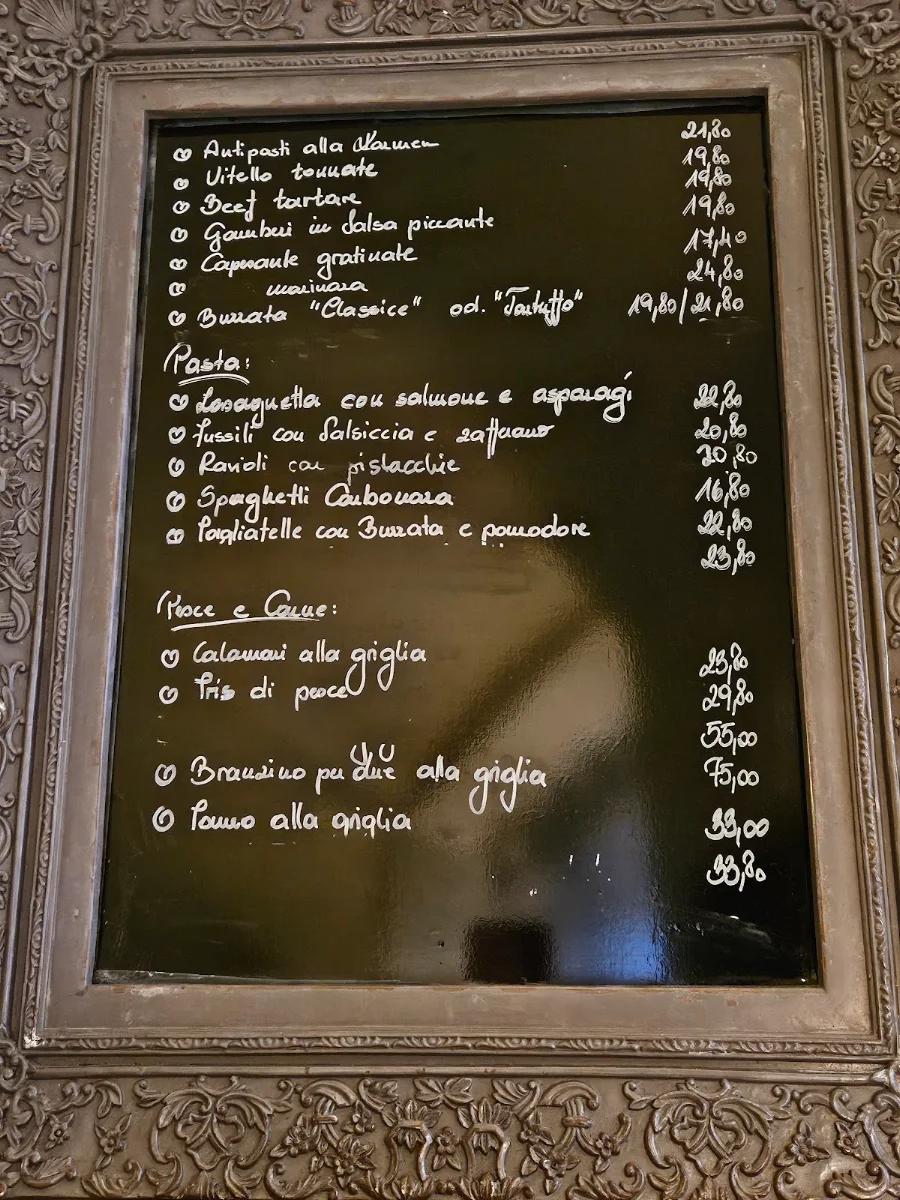 Antipasti alla Karmen 21,80
Vitello tonnate 19,80
Beef tartare 19,80
Gamberi in Salsa piccante 19,80
Capesante gratinate 17,40
marinara 24,80
Burrata "Classice" od. "Tartuffo" 19,80/21,80
Pasta:
Lasagnetta con salmone e asparagi 22,80
Fussili con Salsiccia e zafferano 20,80
Ravioli con pistacchie 20,80
Spaghetti Carbonara 16,80
Tagliatelle con Burrata e pomodore 22,80
23,80
Pesce e Carne:
Calamari alla griglia 23,80
Tris di pesce 29,80
55,00
Branzino per due alla griglia 75,00
Tonno alla griglia 33,00
33,80